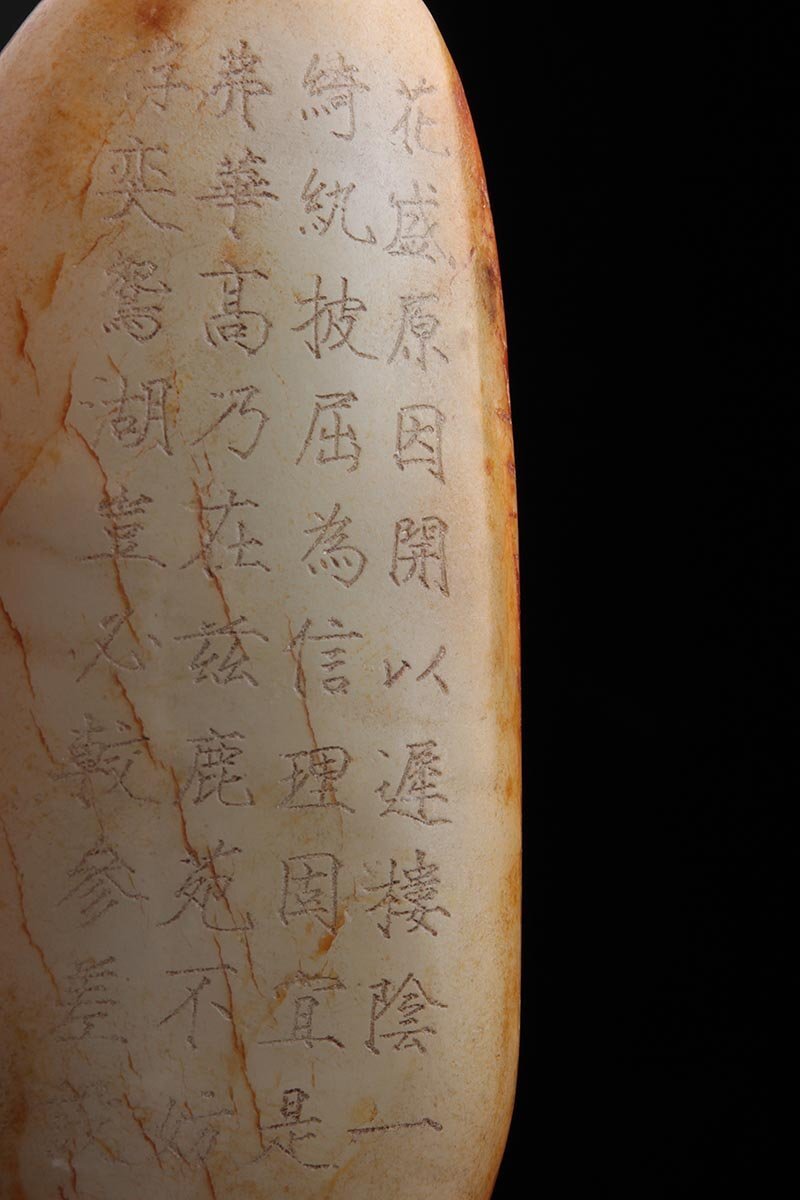 花盛原因開以遲樓陰一
綺紈披屈為信理固宜是
弗華高乃在茲鹿苑不妨
游奕鴛湖豈必較參差設